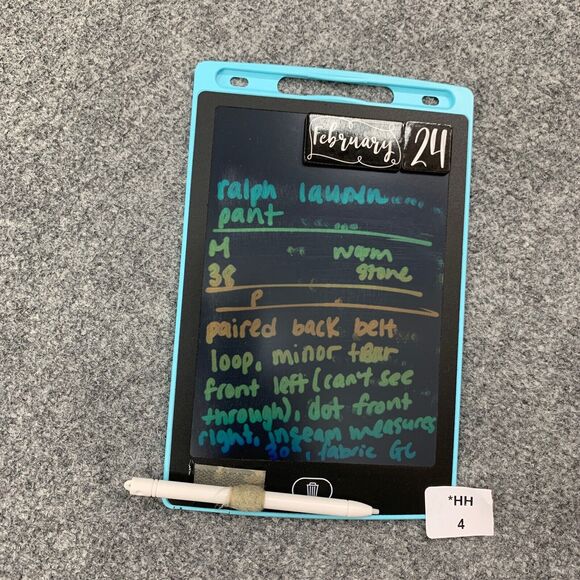 February 24
ralph lauren
pant
M warm
38 stone
paired back belt
loop, minor tear
front left (can't see
through), dot front
right, inseam measures
30", fabric GC
*HH
4